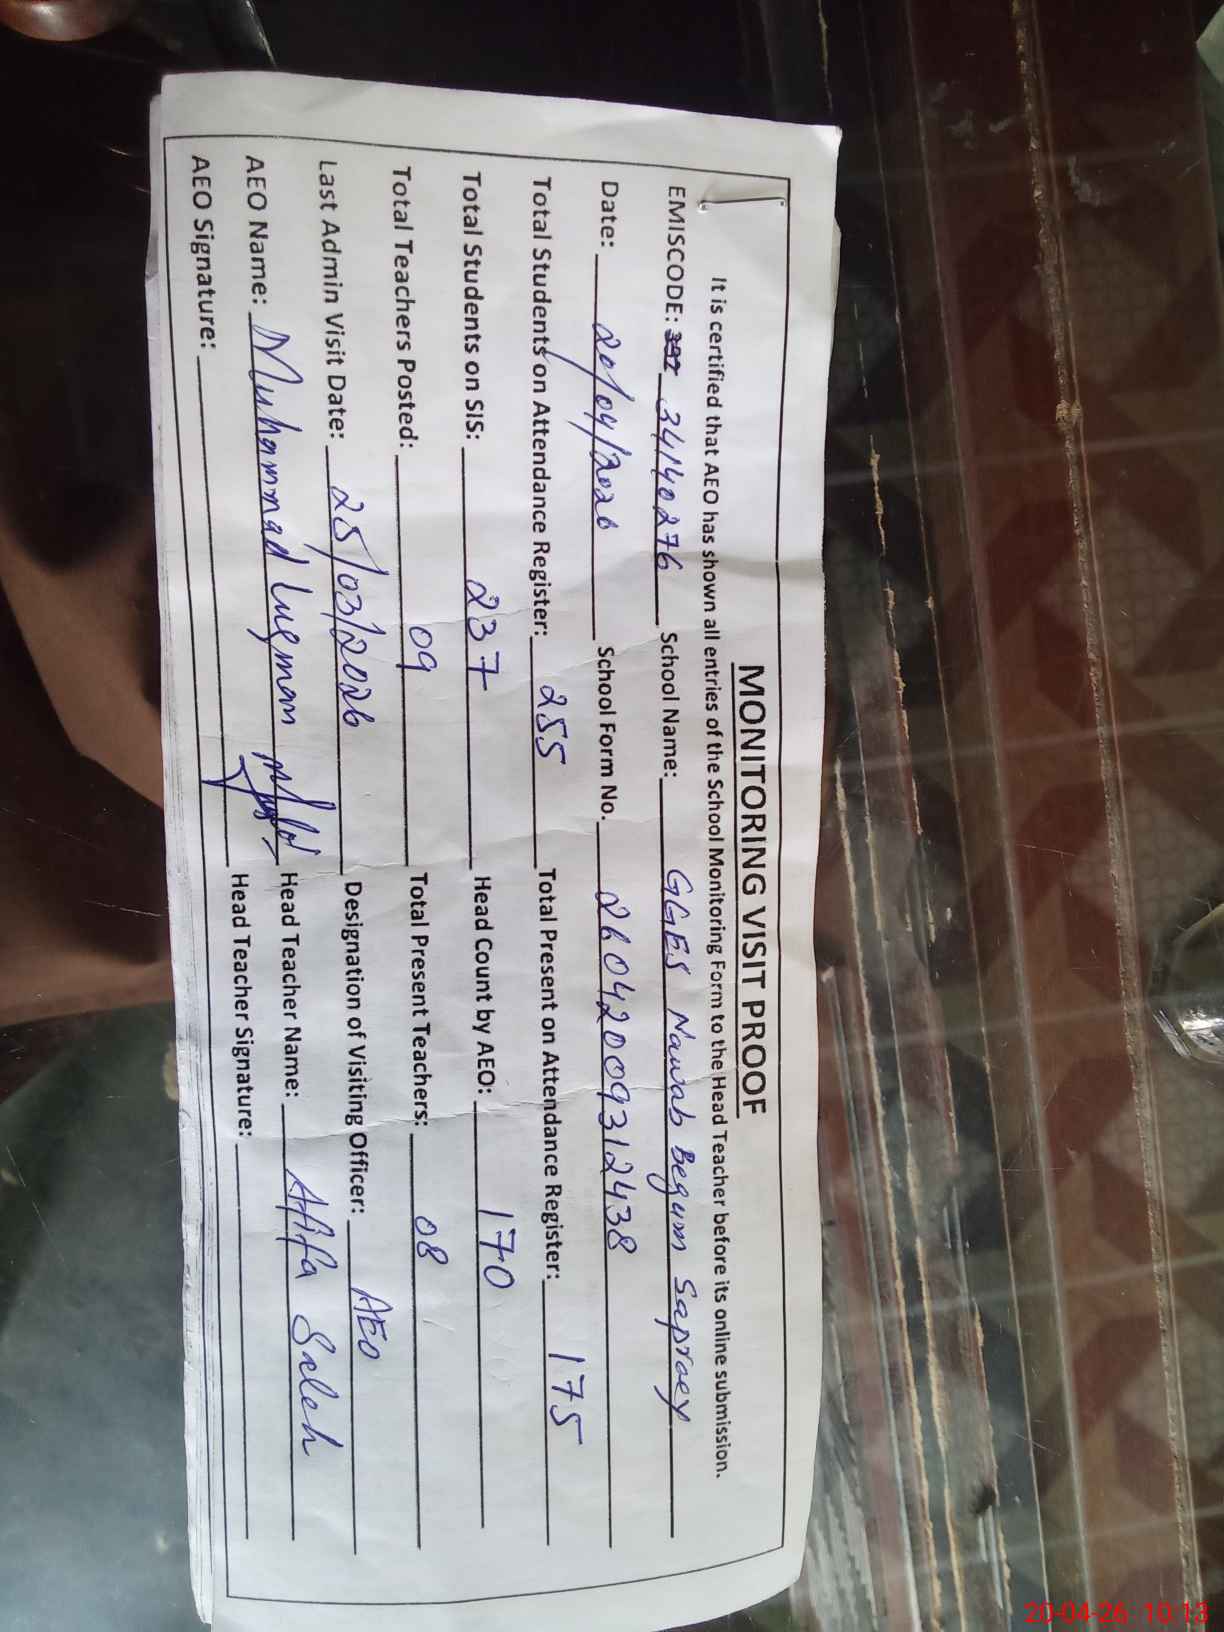 MONITORING VISIT PROOF
It is certified that AEO has shown all entries of the School Monitoring Form to the Head Teacher before its online submission.
EMISCODE: 34140276 School Name: GGES Nawab Begum Sapraey
Date: 20/04/2026 School Form No. 26042009312438
Total Students on Attendance Register: 255 Total Present on Attendance Register: 175
Total Students on SIS: 237 Head Count by AEO: 170
Total Teachers Posted: 09 Total Present Teachers: 08
Last Admin Visit Date: 25/03/2026 Designation of Visiting Officer: AEO
AEO Name: Muhammad Luqman Head Teacher Name: Afifa Saleh
AEO Signature: Head Teacher Signature:
20-04-26 10:13